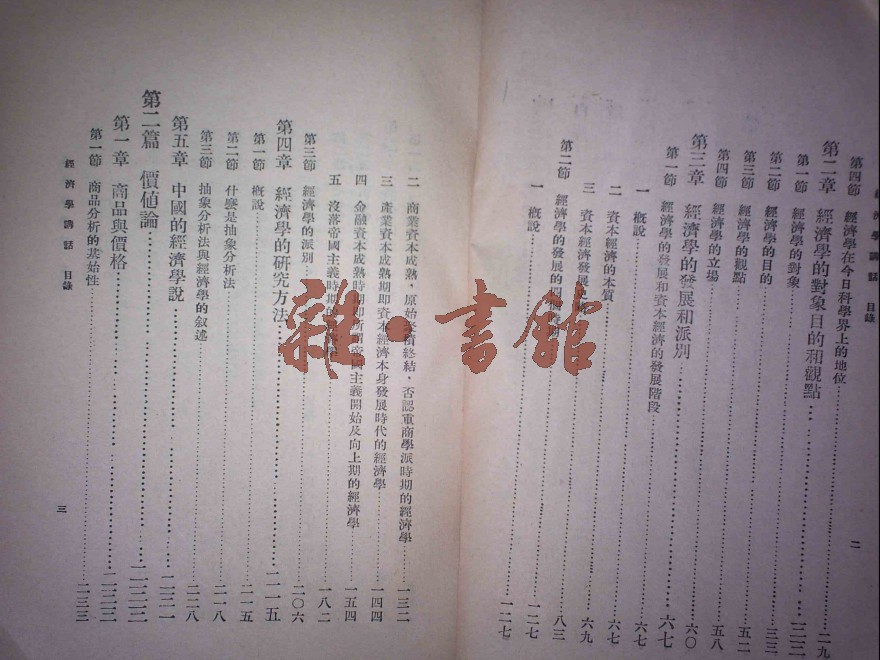 經濟學講話 目錄
二
第四節 經濟學在今日科學界上的地位……二九
第二章 經濟學的對象目的和觀點……三三
第一節 經濟學的對象……三三
第二節 經濟學的目的……五二
第三節 經濟學的觀點……五八
第四節 經濟學的立場……六〇
第三章 經濟學的發展和派別……六七
第一節 經濟學的發展和資本經濟的發展階段……六七
一 概說……六七
二 資本經濟的本質……六九
三 資本經濟發展……八三
第二節 經濟學的發展的……一二七
一 概說……一二七
二 商業資本成熟，原始終結，否認重商學派時期的經濟學……一三二
三 產業資本成熟時期即資本經濟本身發展時代的經濟學……一四四
四 金融資本成熟時期即所謂帝國主義開始及向上期的經濟學……一五四
五 沒落帝國主義時期的……一八二
第三節 經濟學的派別……二〇六
第四章 經濟學的研究方法……二一五
第一節 概說……二一五
第二節 什麼是抽象分析法……二一八
第三節 抽象分析法與經濟學的叙述……二二八
第五章 中國的經濟學說……二三一
第二篇 價值論……二三三
第一章 商品與價格……二三三
第一節 商品分析的基始性……二三三
經濟學講話 目錄
三
雜·書館